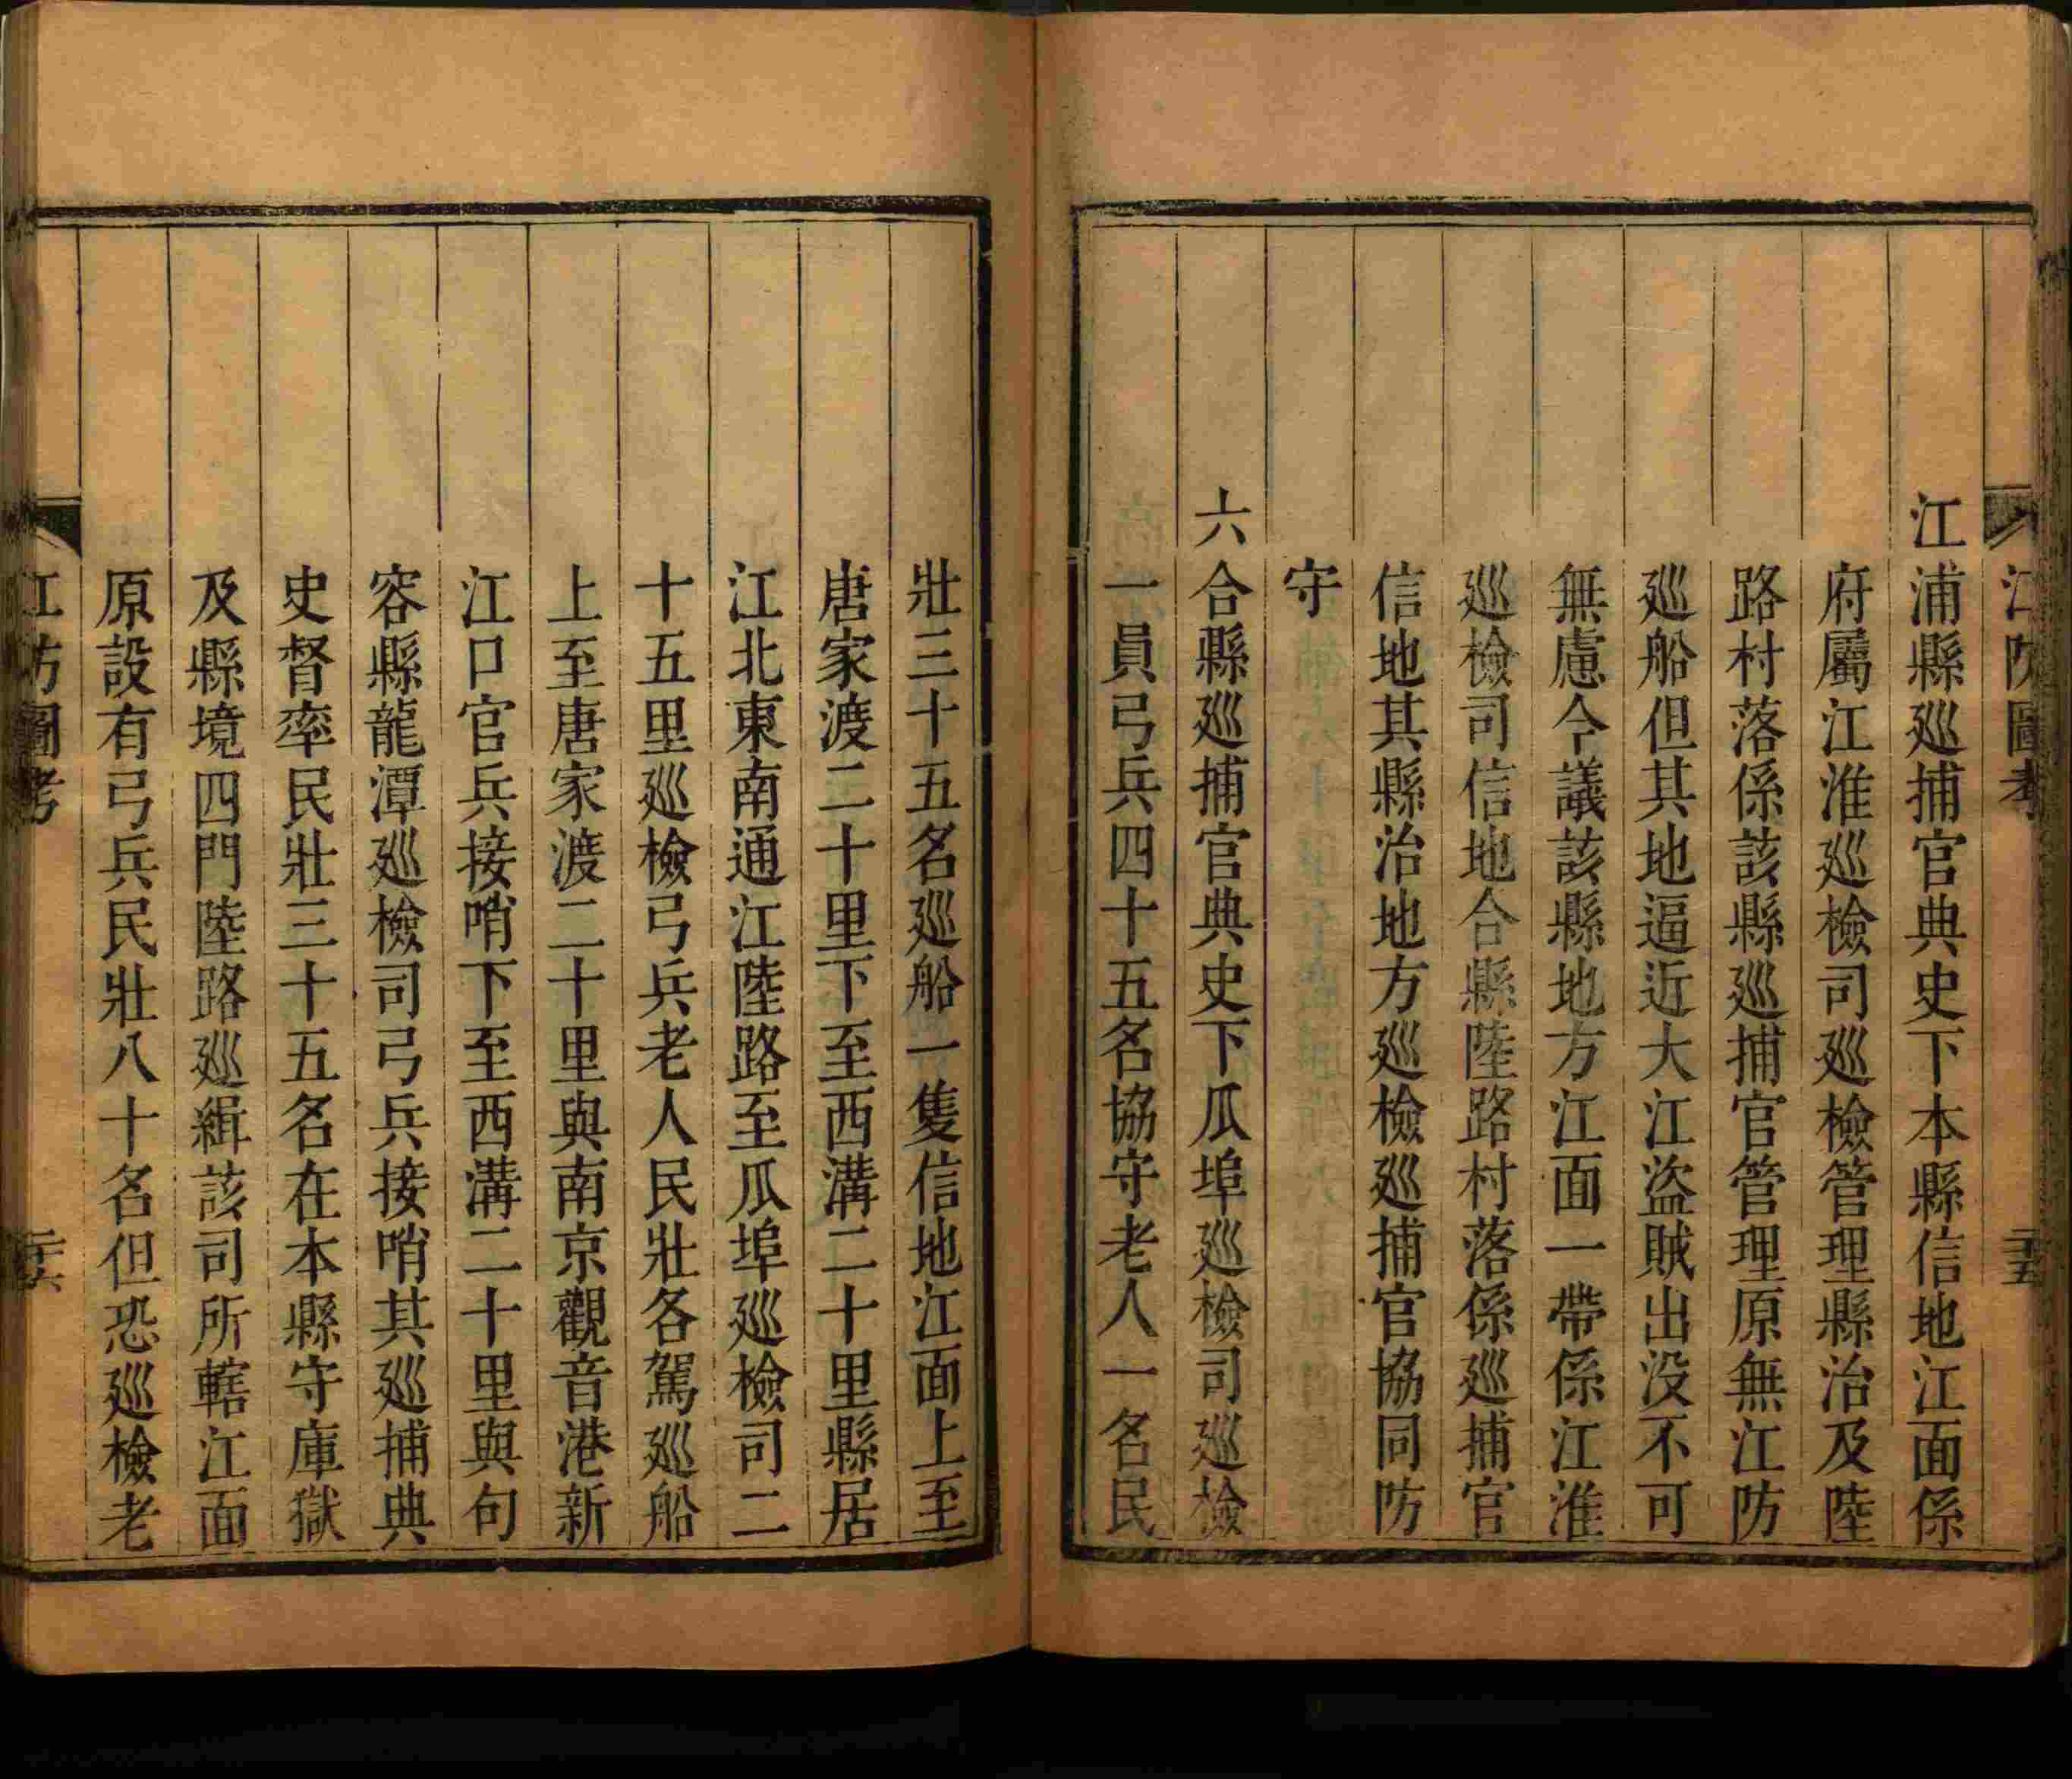 江防圖考
二十五
江浦縣廵捕官典史下本縣信地江面係
府屬江淮廵檢司廵檢管理縣治及陸
路村落係該縣廵捕官管理原無江防
廵船但其地逼近大江盜賊出没不可
無慮今議該縣地方江面一帶係江淮
廵檢司信地合縣陸路村落係廵捕官
信地其縣治地方廵檢廵捕官協同防
守
六合縣廵捕官典史下瓜埠廵檢司廵檢
一員弓兵四十五名協守老人一名民
壯三十五名廵船一隻信地江面上至
唐家渡二十里下至西溝二十里縣居
江北東南通江陸路至瓜埠廵檢司二
十五里廵檢弓兵老人民壯各駕廵船
上至唐家渡二十里與南京觀音港新
江口官兵接哨下至西溝二十里與句
容縣龍潭廵檢司弓兵接哨其廵捕典
史督率民壯三十五名在本縣守庫獄
及縣境四門陸路廵緝該司所轄江面
原設有弓兵民壯八十名但恐廵檢老
江防圖考
二十六